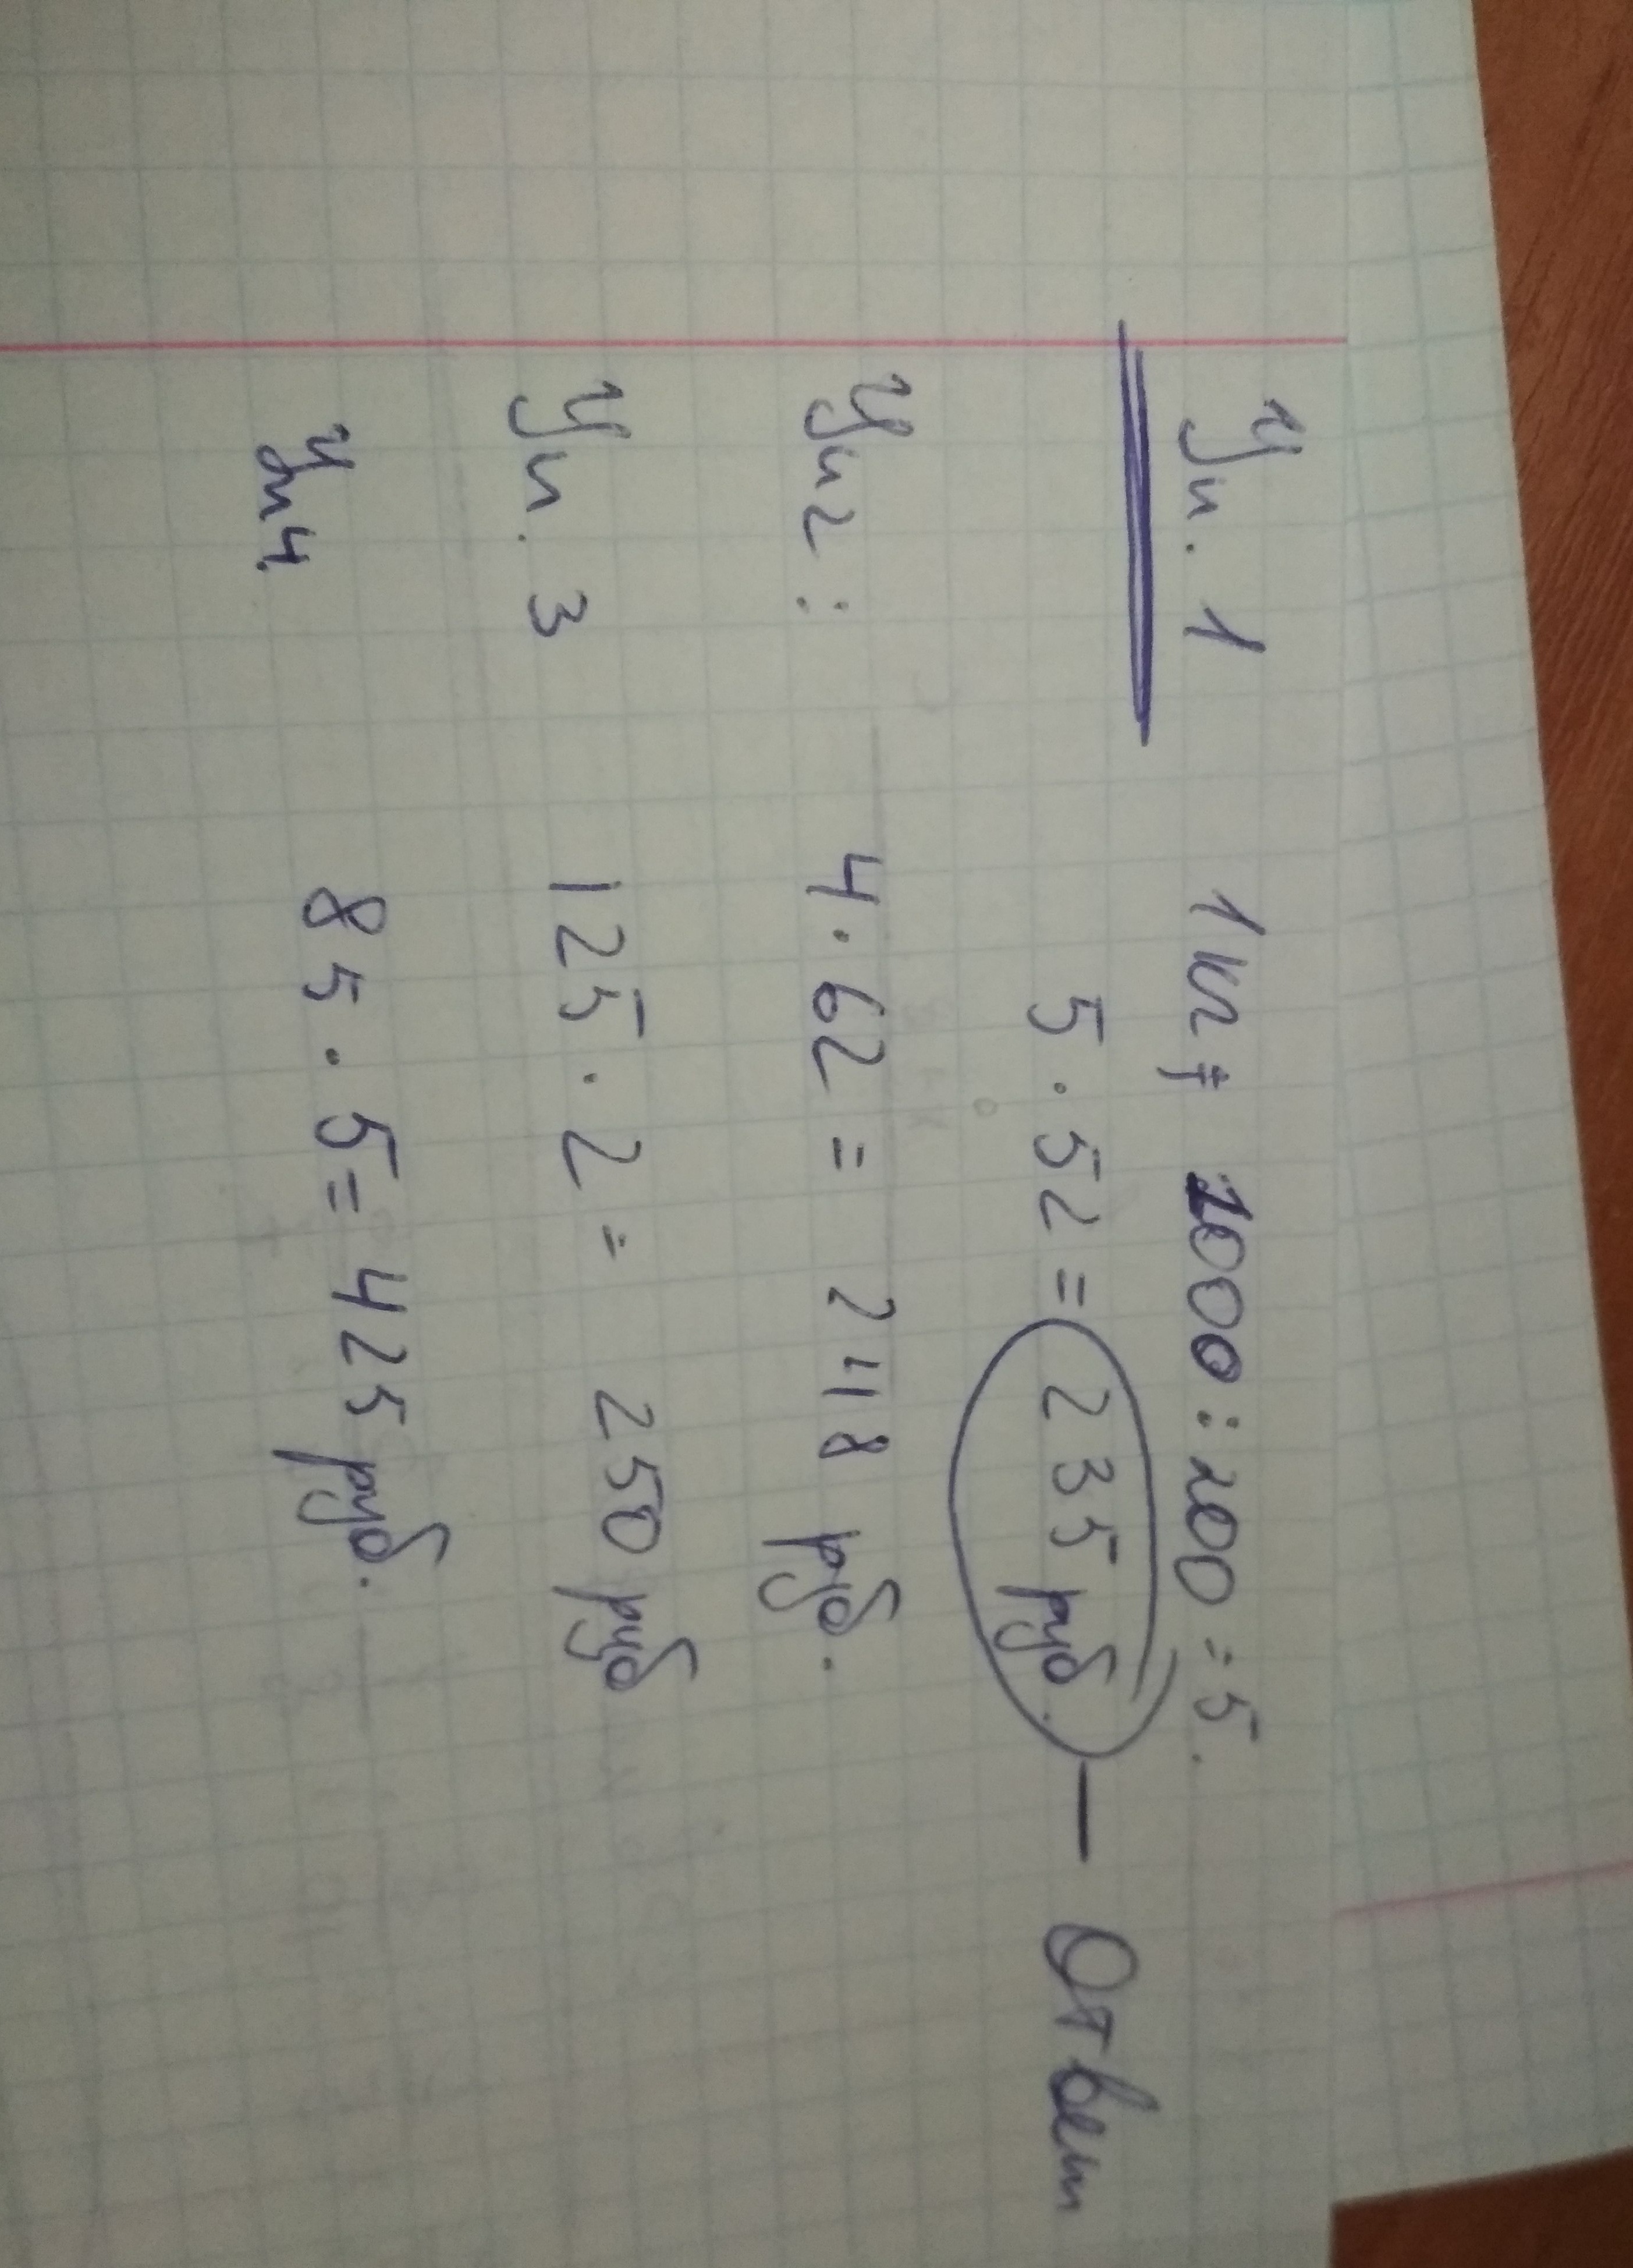 Уп. 1 1кг = 1000 : 200 = 5.
5 · 52 = 235 руб. — Ответ
Уп2 : 4 · 62 = 248 руб.
Уп. 3 125 · 2 = 250 руб
Уп4. 85 · 5 = 425 руб.